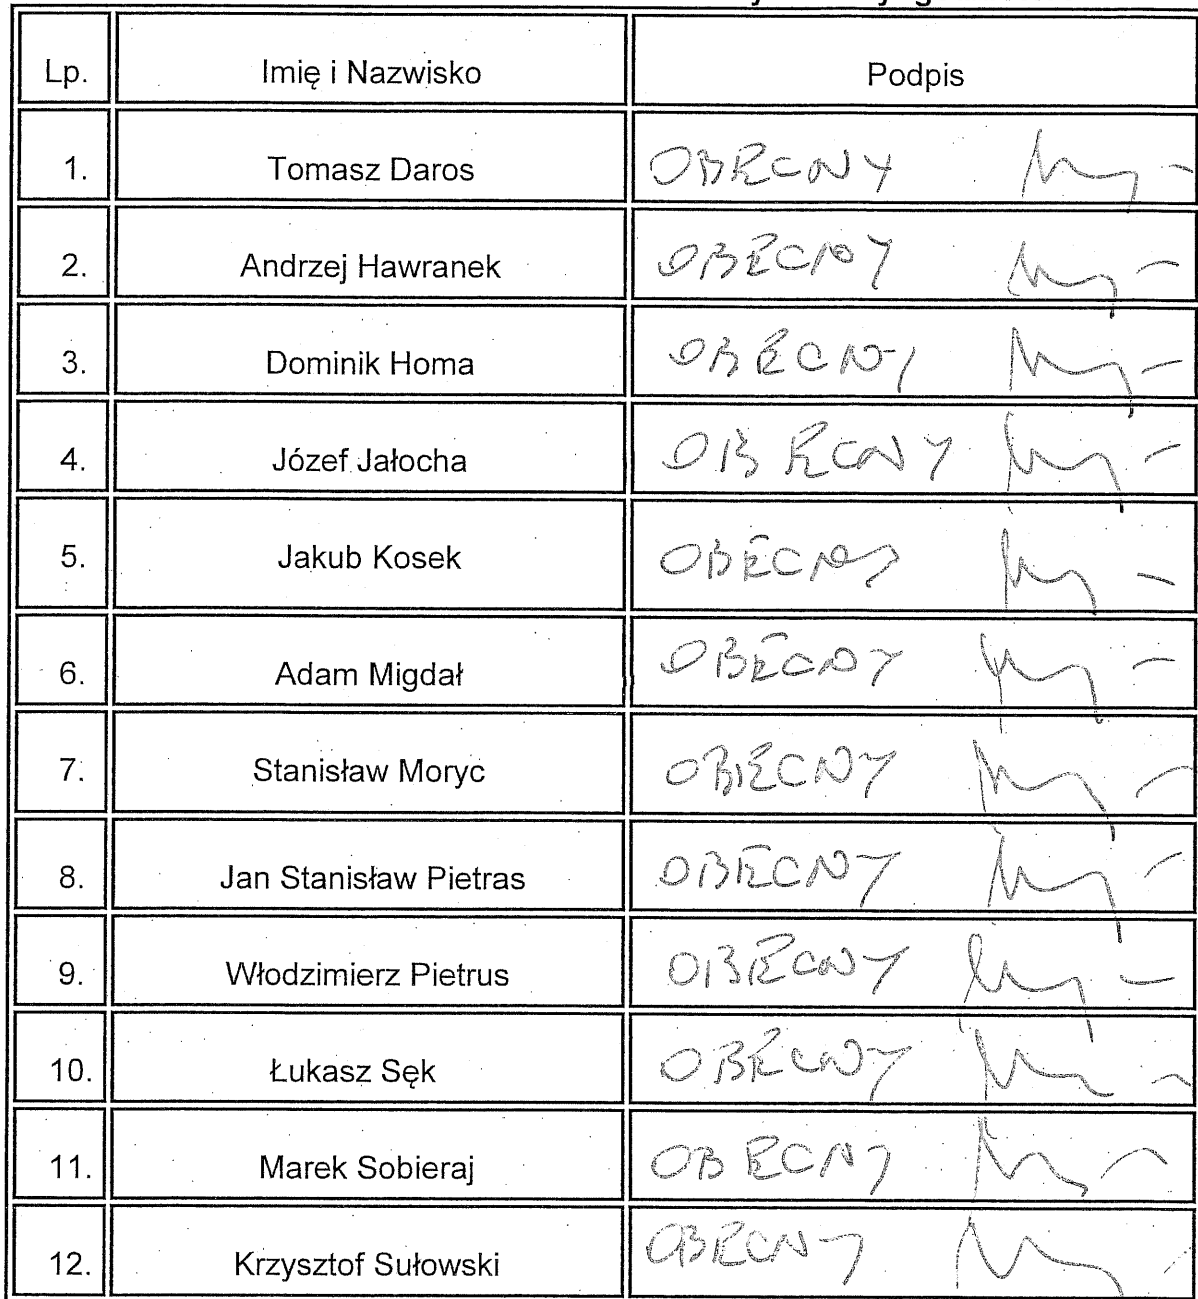 Lp. Imię i Nazwisko Podpis
1. Tomasz Daros OBECNY
2. Andrzej Hawranek OBECNY
3. Dominik Homa OBECNY
4. Józef Jałocha OBECNY
5. Jakub Kosek OBECNY
6. Adam Migdał OBECNY
7. Stanisław Moryc OBECNY
8. Jan Stanisław Pietras OBECNY
9. Włodzimierz Pietrus OBECNY
10. Łukasz Sęk OBECNY
11. Marek Sobieraj OBECNY
12. Krzysztof Sułowski OBECNY